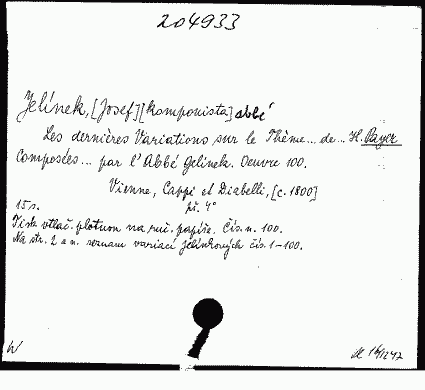 204933
Jelínek, [Josef] [komponista] abbé
Les dernières Variations sur le Thême... de... H. Payer
composées... par l'Abbé Gelinek. Oeuvre 100.
Vienne, Cappi et Diabelli, [c. 1800]
15 s. př. 4°
Tisk vtlač. plotnou na ruč. papíře. Čís. n. 100.
Na str. 2 a n. seznam variací Jelínkových čís. 1-100.
W